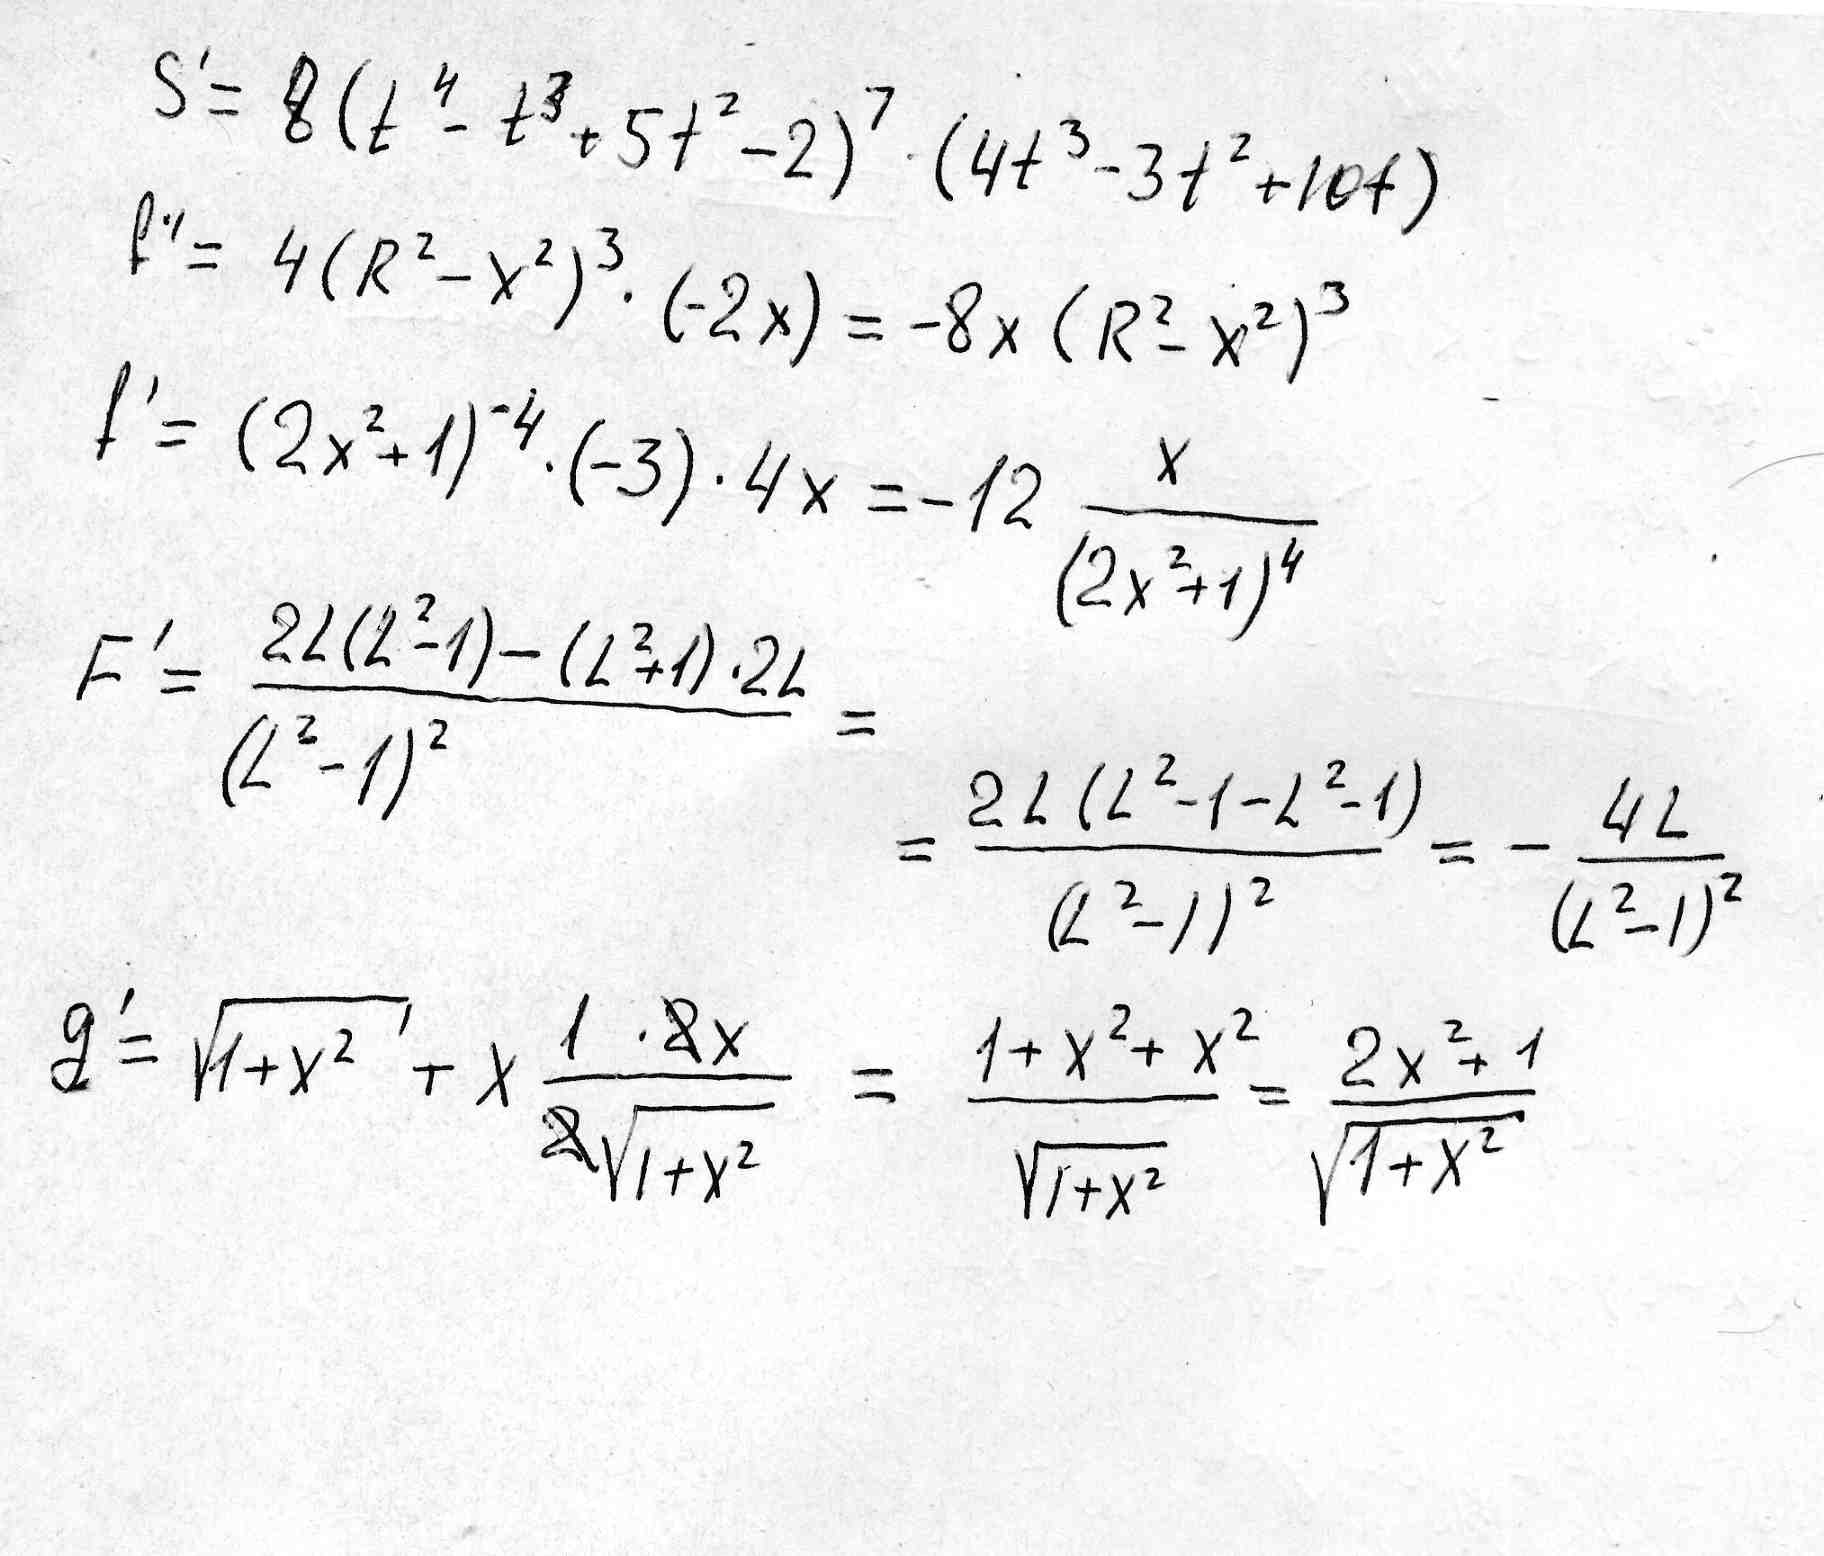 S' = 8(t⁴ - t³ + 5t² - 2)⁷ · (4t³ - 3t² + 10t)
f'' = 4(R² - x²)³ · (-2x) = -8x(R² - x²)³
f' = (2x² + 1)⁻⁴ · (-3) · 4x = -12 x/(2x² + 1)⁴
F' = (2L(L² - 1) - (L² + 1) · 2L)/(L² - 1)² =
= 2L(L² - 1 - L² - 1)/(L² - 1)² = - 4L/(L² - 1)²
g' = √(1 + x²) + x (1 · 2x)/(2√(1 + x²)) = (1 + x² + x²)/√(1 + x²) = (2x² + 1)/√(1 + x²)